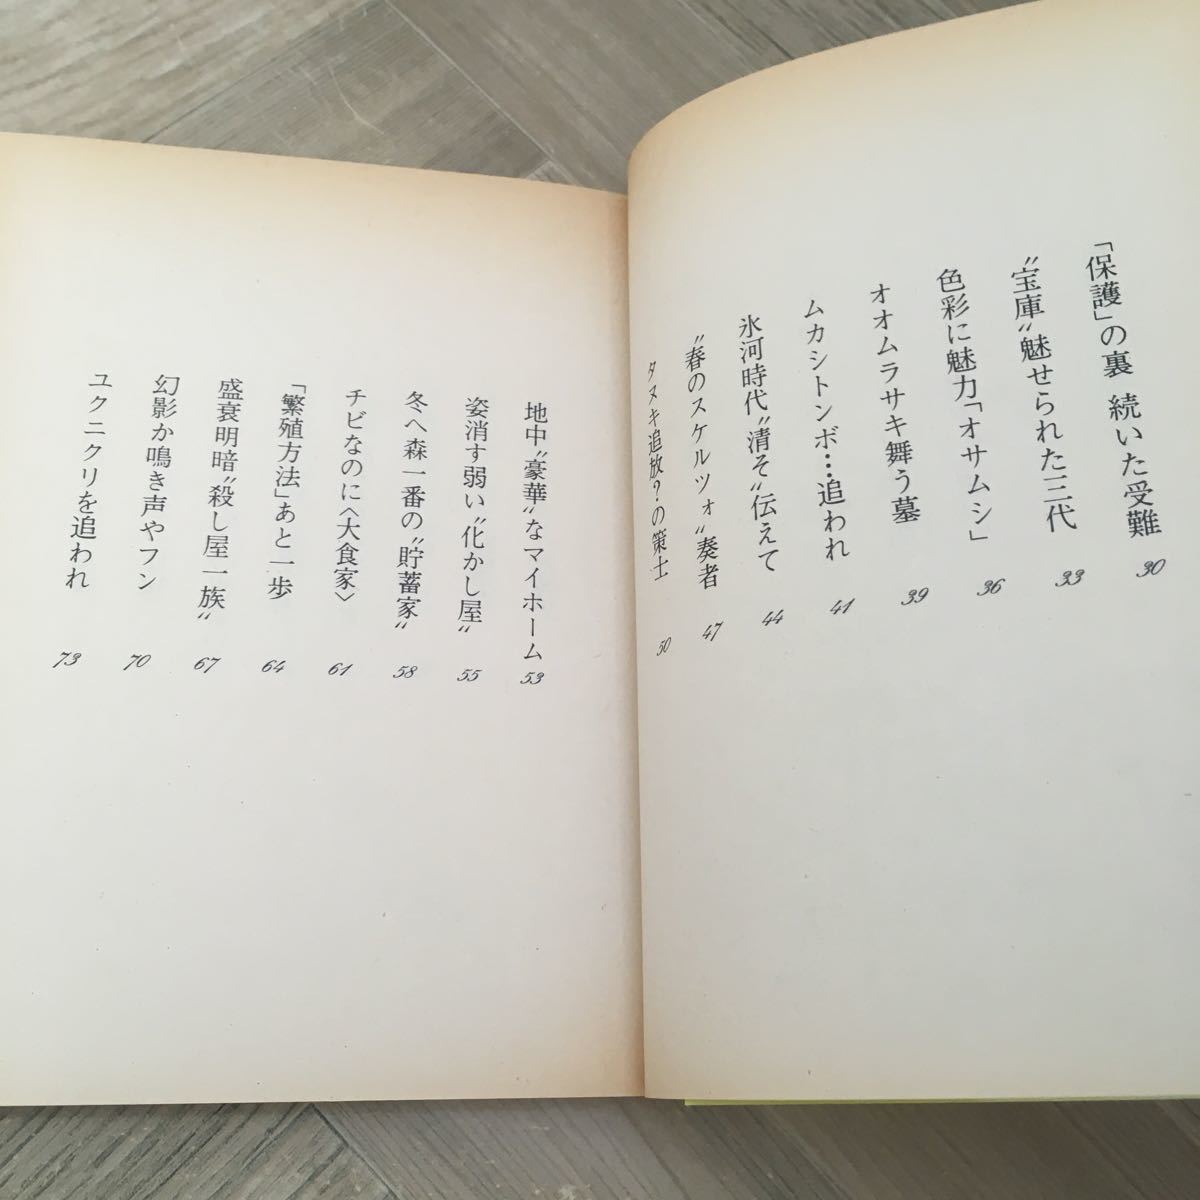 「保護」の裏 続いた受難 30
〝宝庫〟魅せられた三代 33
色彩に魅力「オサムシ」 36
オオムラサキ舞う墓 39
ムカシトンボ…追われ 41
氷河時代〝清そ〟伝えて 44
〝春のスケルツォ〟奏者 47
タヌキ追放?の策士 50
地中〝豪華〟なマイホーム 53
姿消す弱い〝化かし屋〟 55
冬へ森一番の〝貯蓄家〟 58
チビなのに〈大食家〉 61
「繁殖方法」あと一歩 64
盛衰明暗〝殺し屋一族〟 67
幻影か鳴き声やフン 70
ユクニクリを追われ 73